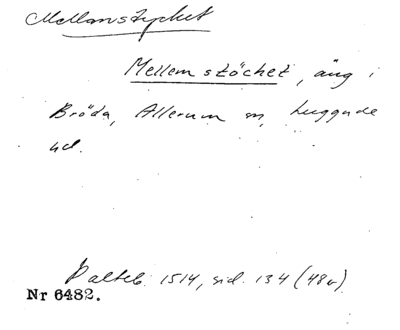 Mellanstycket
Mellemstöchet, äng i
Bröda, Allerum sn, Luggude
hd.
Palteb. 1514, sid. 134 (48v)
Nr 6482.